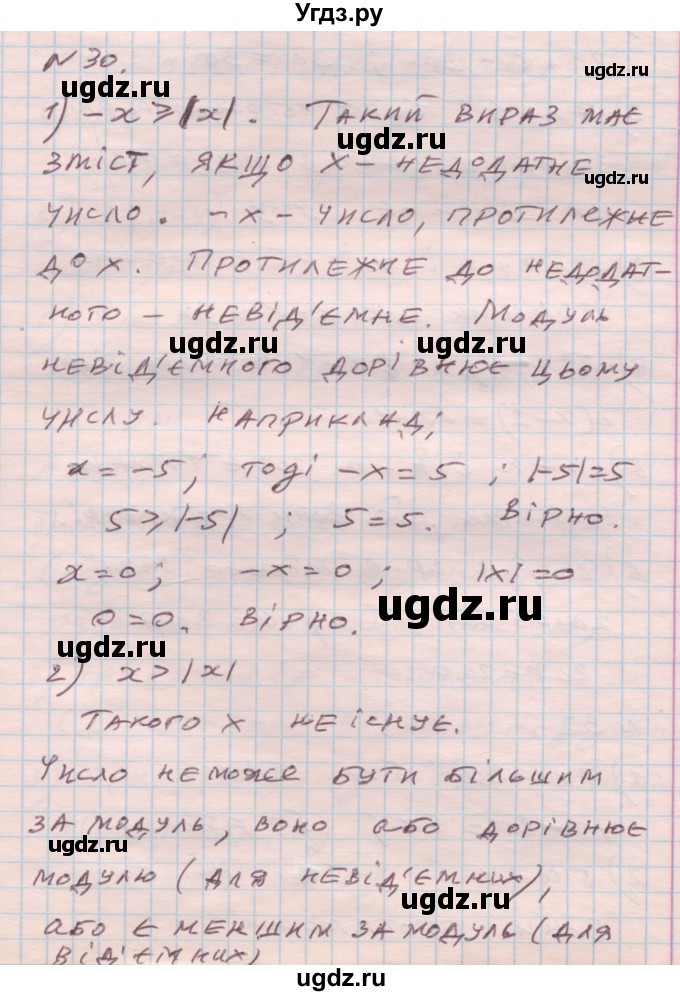 Угдз.ру
N 30.
1) -x ⩾ |x|. Такий вираз має
зміст, якщо x – недодатнє
число. -x – число, протилежне
до x. Протилежне до недодат-
ного – невід'ємне. Модуль
невід'ємного дорівнює цьому
числу. Наприклад;
x = -5; тоді -x = 5 ; |-5| = 5
5 ⩾ |-5| ; 5 = 5. Вірно.
x = 0; -x = 0; |x| = 0
0 = 0. Вірно.
2) x > |x|
Такого x не існує.
Число не може бути більшим
за модуль, воно або дорівнює
модулю (для невід'ємних),
або є меншим за модуль (для
від'ємних)
ugdz.ru
ugdz.ru
ugdz.ru
ugdz.ru
ugdz.ru
ugdz.ru
ugdz.ru
ugdz.ru
ugdz.ru
ugdz.ru
ugdz.ru
ugdz.ru
ugdz.ru
ugdz.ru